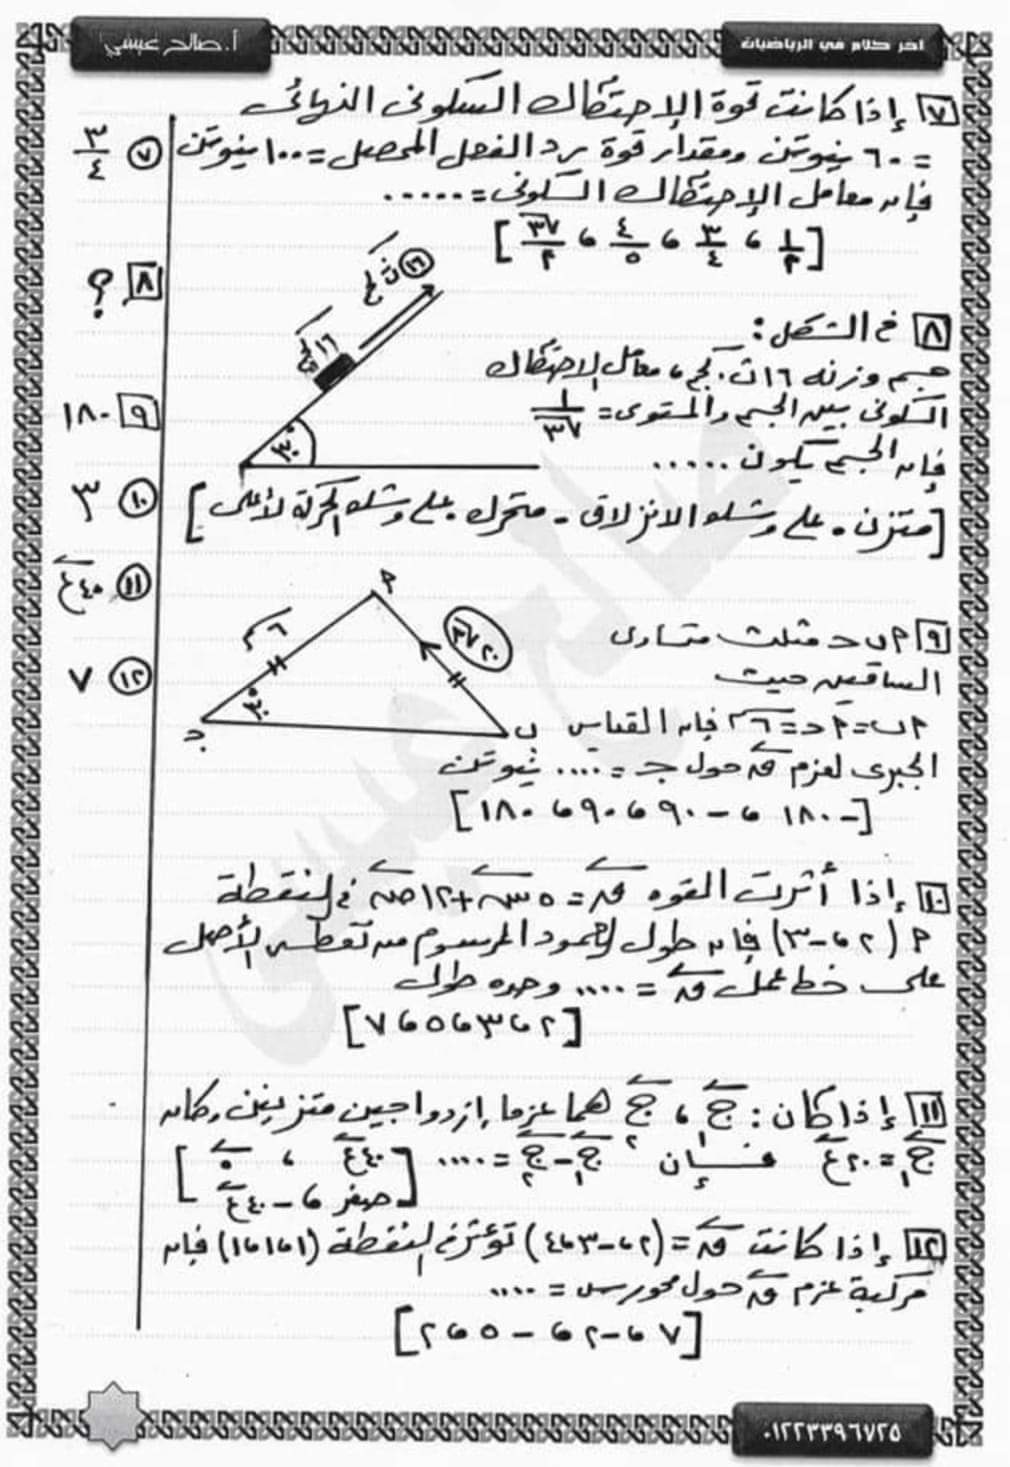 أ. صالح عيسي
اخر كلام في الرياضيات
٧ إذا كانت قوة الإحتكاك السكونى النهائى
= ٦٠ نيوتن ومقدار قوة رد الفعل المحصل = ١٠٠ نيوتن
فإن معامل الإحتكاك السكونى = .....
[ ١/٢ ، ٣/٤ ، ٤/٥ ، √٣/٢ ]
٨ فى الشكل:
جسم وزنه ١٦ ث.كجم ، معامل الاحتكاك
السكونى بين الجسم والمستوى = ١/√٣
فإن الجسم يكون .....
[متزن - على وشك الانزلاق - متحرك - على وشك الحركة لأعلى]
١٦ ث كجم
١٦ كجم
٣٠°
٩ أ ب ج مثلث متساوى
الساقين حيث
أ ب = أ ج = ٦ سم فإن القياس
الجبرى لعزم ق حول ج = .... نيوتن
[-١٨٠ ، -٩٠ ، ٩٠ ، ١٨٠]
أ
ب
ج
٦ سم
٣٠°
٢٠√٣
١٠ إذا أثرت القوه ق = ٥ س + ١٢ ص فى النقطة
أ (٢ ، -٣) فإن طول العمود المرسوم من نقطة الأصل
على خط عمل ق = .... وحده طول
[٢ ، ٣ ، ٥ ، ٧]
١١ إذا كان: ج١ ، ج٢ هما عزما إزدواجين متزنين وكان
ج١ = ٢٠ ع فإن ج١ - ج٢ = ....
[٤٠ ع ، ٠ ، صفر ، -٤٠ ع]
١٢ إذا كانت ق = (٢ ، -٣ ، ٤) تؤثر فى النقطة (١ ، ١ ، ١) فإن
مركبة عزم ق حول محور س = ....
[٧ ، -٢ ، -٥ ، ٢]
٧ ٣/٤
٨ ؟
٩ ١٨٠
١٠ ٣
١١ ٤٠ ع
١٢ ٧
٠١٢٢٣٣٩٦٧٢٥